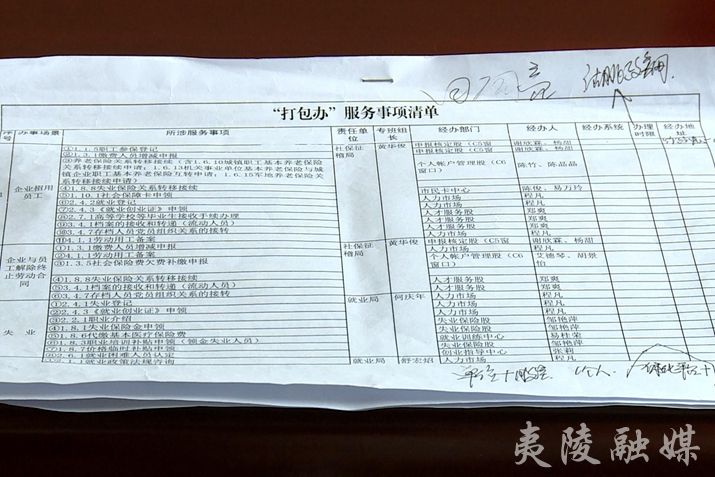 “打包办”服务事项清单
序号 办事场景 所涉服务事项 责任单位 专班组长 经办部门 经办人 经办系统 办理时限 经办地址
企业招用员工
①1.1.5职工参保登记 社保征稽局 黄华俊 申报核定股(C5窗 谢欣霖、杨甜
②1.3.1缴费人员增减申报 申报核定股(C5窗 谢欣霖、杨甜
③养老保险关系转移接续(含1.6.10城镇职工基本养老保险
关系转移接续申请;1.6.13机关事业单位基本养老保险与城
镇企业职工基本养老保险互转申请;1.6.15军地养老保险关
系转移接续申请) 个人帐户管理股(C6窗口) 陈竹、陈晶晶
④1.8.8失业保险关系转移接续
⑤1.10.1社会保障卡申领 市民卡中心 陈俊、易万玲
⑥2.4.2就业登记 人力市场 程凡
⑦2.4.3《就业创业证》申领 人力市场 程凡
⑧2.7.1高等学校等毕业生接收手续办理 人才服务股 郑爽
⑨3.4.1档案的接收和转递(流动人员) 人才服务股 郑爽
⑩3.4.7存档人员党员组织关系的接转 人才服务股 郑爽
4.1.1劳动用工备案 人力市场 程凡
企业与员工解除终止劳动合同
①1.3.1缴费人员增减申报 社保征稽局 黄华俊 申报核定股(C5窗 谢欣霖、杨甜
②4.1.1劳动用工备案 人力市场 程凡
③1.3.5社会保险费欠费补缴申报 个人帐户管理股(C6窗口) 艾德琴、胡景怡
④1.8.8失业保险关系转移接续
⑤3.4.1档案的接收和转递(流动人员) 人才服务股 郑爽
⑥3.4.7存档人员党员组织关系的接转 人才服务股 郑爽
失业
①2.4.1失业登记 就业局 何庆年 人力市场 程凡
②2.4.3《就业创业证》申领 人力市场 程凡
③2.2.1职业介绍 人力市场 程凡
④1.8.1失业保险金申领 失业保险股 邹艳萍
⑤1.8.6代缴基本医疗保险费 失业保险股 邹艳萍
⑥1.8.3职业培训补贴申领(领金失业人员) 就业训练中心 易桂荣
⑦1.8.7价格临时补贴申领 失业保险股 邹艳萍
2.6.1就业困难人员认定 创业指导中心 张莉
2.1.1就业政策法规咨询 就业局 舒宏焰 人力市场 程凡
夷陵融媒